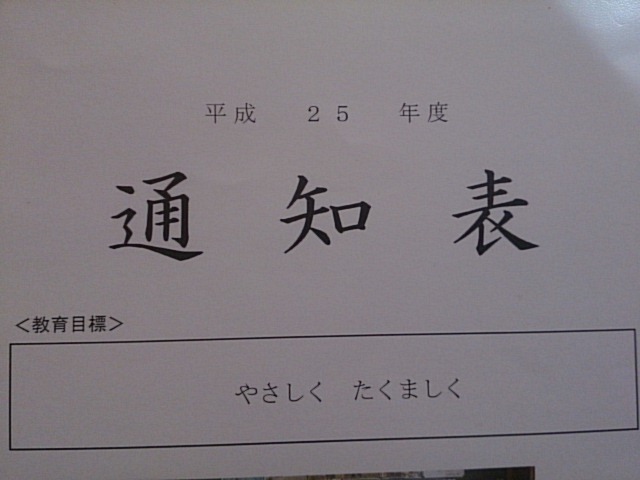 平成　２５　年度
通知表
＜教育目標＞
やさしく　たくましく